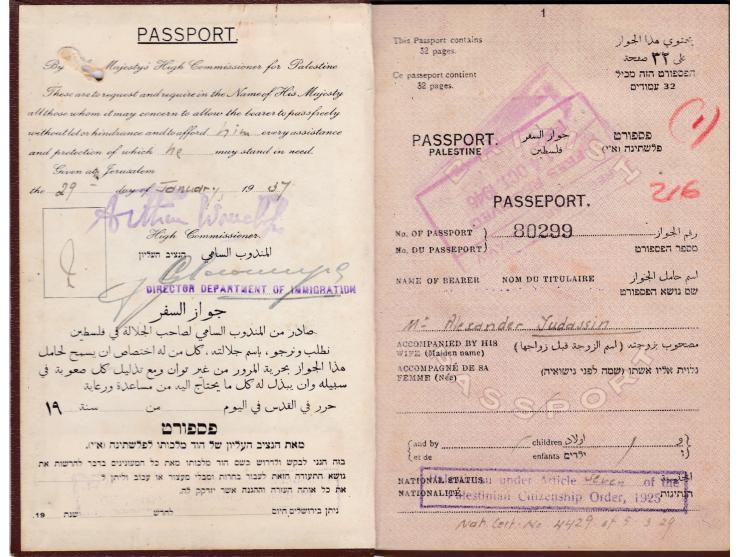 PASSPORT.
By Majesty's High Commissioner for Palestine
These are to request and require in the Name of His Majesty
all those whom it may concern to allow the bearer to pass freely
without let or hindrance and to afford him every assistance
and protection of which he may stand in need.
Given at Jerusalem
the 29- day of January 1937
High Commissioner.
المندوب السامي הנציב העליון
DIRECTOR DEPARTMENT OF IMMIGRATION
جواز السفر
صادر من المندوب السامي لصاحب الجلالة في فلسطين
نطلب ونرجو، باسم جلالته، كل من له اختصاص ان يسمح لحامل
هذا الجواز بحرية المرور من غير توان ومع تذليل كل صعوبة في
سبيله وان يبذل له كل ما يحتاج اليه من مساعدة ورعاية
حرر في القدس في اليوم من سنة ١٩
פספורט
מאת הנציב העליון של הוד מלכותו לפלשתינה (א״י).
בזה הנני לבקש ולדרוש בשם הוד מלכותו מאת כל המעונינים בדבר להרשות את
נושא התעודה הזאת לעבור בחרות ומבלי מעצור או עכוב וליתן לו
את כל אותה העזרה וההגנה אשר יזדקק לה.
ניתן בירושלים היום לחדש שנת 19
1
This Passport contains
32 pages.
يحتوي هذا الجواز
على ٣٢ صفحة
Ce passeport contient
32 pages.
הפספורט הזה מכיל
32 עמודים
1
PASSPORT.
PALESTINE
جواز السفر
فلسطين
פספורט
פלשתינה (א״י)
216
PASSEPORT.
No. OF PASSPORT
No. DU PASSEPORT
80299
رقم الجواز
מספר הפספורט
NAME OF BEARER NOM DU TITULAIRE
اسم حامل الجواز
שם נושא הפספורט
Mr Alexander Yudassin
ACCOMPANIED BY HIS
WIFE (Maiden name)
مصحوب بزوجته (اسم الزوجة قبل زواجها)
ACCOMPAGNÉ DE SA
FEMME (Née)
נלוית אליו אשתו (שמה לפני נשואיה)
and by children اولاد و
et de enfants ילדים
NATIONAL STATUS
NATIONALITÉ
under Article seven of the
Palestinian Citizenship Order, 1925
נתינות
Nat. Cert. No 4429 of 5.3.29